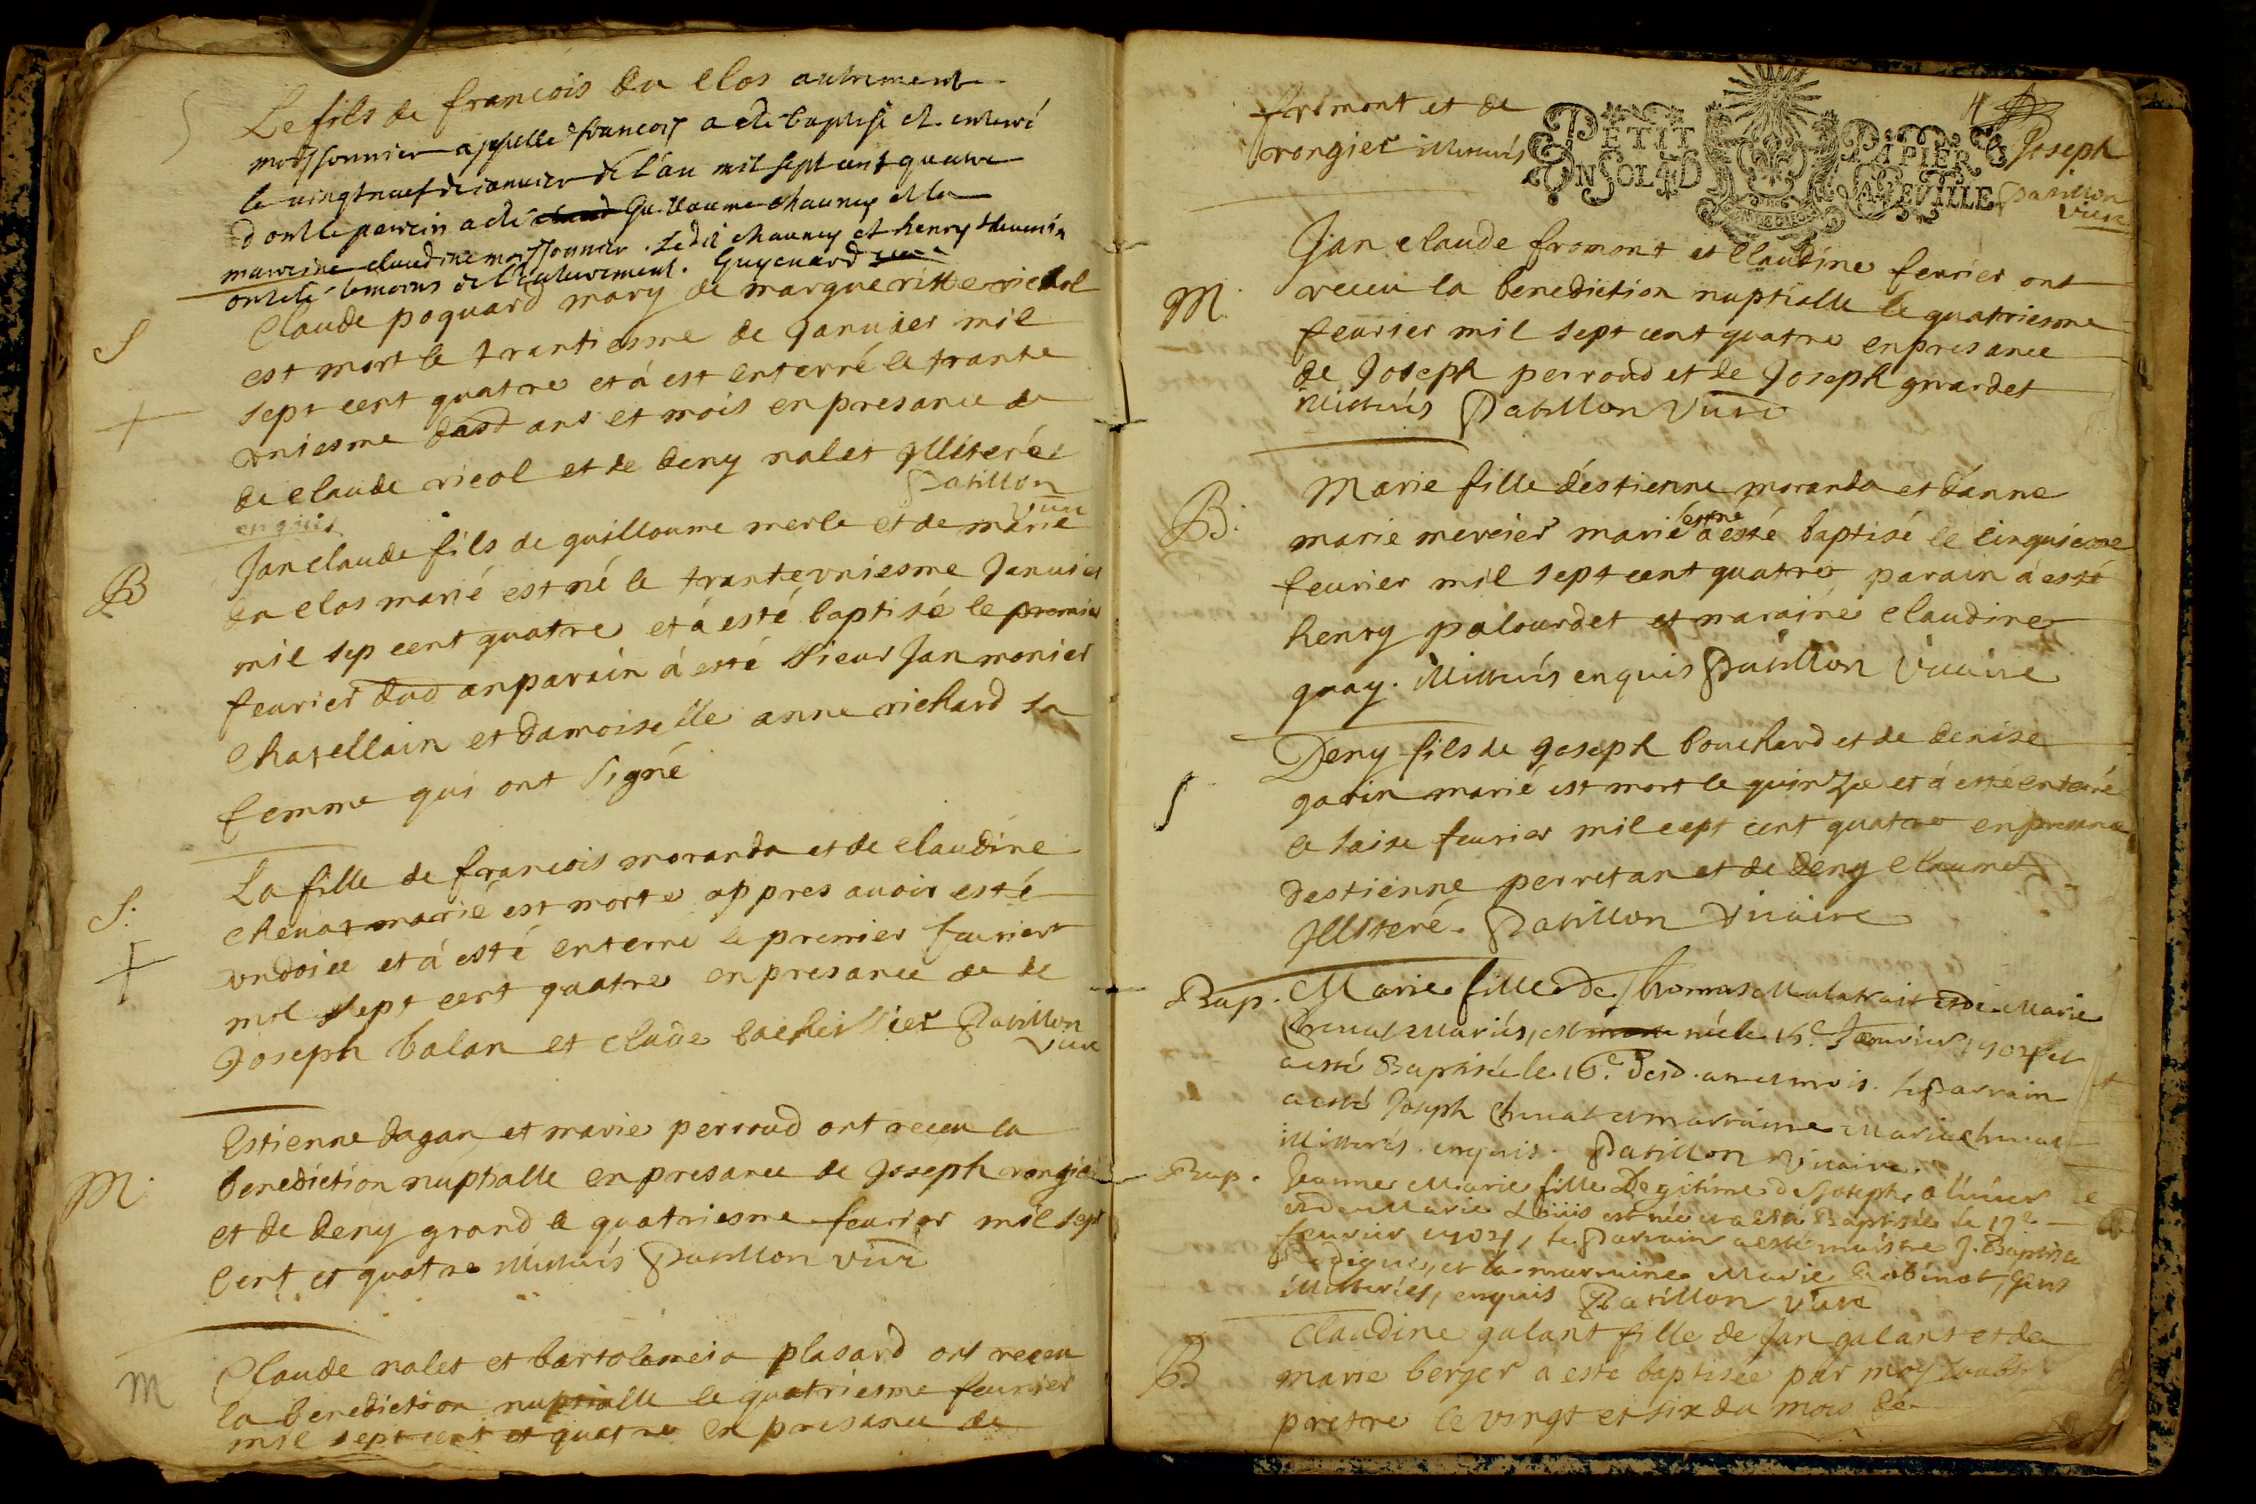 Le fils de francois du clos autrement
moissonnier appellé francois a été baptisé et enterré
le vingt neuf de ianuier de l'an mil sept cent quatre
dont le parrein a été Guillaume chauney et la
marreine claudine moissonnier . Ledit chauney et henry theuenin
ont été temoins de l'enterrement . Guyenard
S
Claude poquard mary de margueritte ricol
est mort le trantiesme de Januier mil
sept cent quatre et à est enterré le trante
vniesme dusd ans et mois en presance de
de claude ricol et de deny nalet Jlliterés
enquis Patillon
Vicre
B
Jan claude fils de guilloume merle et de marie
du clos marié est né le trantevniesme Januier
mil sep cent quatre et à esté baptisé le premier
feurier dud an parain à esté Sieur Jan monier
Chatellain et damoiselle anne richard sa
femme qui ont signé
S:
La fille de francois moranda et de claudine
chenat marié est morte appres auoir esté
vndoiee et à esté enterré le premier feurier
mil sept cent quatre en presance de de
Joseph balan et claude Patillon
Vicre
M:
Estienne dagan et marie perroud ont receu la
benediction nuptialle en presance de Joseph rongier
et de deny grand le quatriesme feurier mil sept
cent et quatre illiterés Patillon vicre
M
Claude nalet et bartolomeia plasard ont receu
la benediction nuptialle le quatriesme feurier
mil sept cent et quatre en presance de
fromont et de Joseph
rongier illiterés Patillon
Vicre
4
PETIT PAPIER
CONSOLID VACEVILLE
M.
Jan claude fromont et Claudine ferrier ont
receu la benediction nuptialle le quatriesme
feurier mil sept cent quatre en presance
de Joseph perroud et de Joseph girardet
illiterés Patillon Vicre
B:
Marie fille d'estienne moranda et d'anne
marie mercier marié est né à esté baptisé le cinquiesme
feurier mil sept cent quatre parain à esté
henry palourdet et maraine claudine
gray . illiterés enquis Patillon Vicaire
S
Deny fils de Joseph bouchard et de denise
gatin marié est mort le quinze et à esté enterré
le saise feurier mil cept cent quatre en presance
destienne perretan et de deny claumet
Jlliteré . Patillon Vicaire
Bap.
Marie fille de Thomas Malatrait et de Marie
Chenat Mariés, est née le 15e Feurier 1704 et
a esté Baptisée le 16e desd. an et mois . le Parrain
a esté Joseph Chenat et marraine Marie Chenat
illiterés . enquis . Patillon Vicaire .
Bap.
Jeanne Marie fille Legitime de Joseph oliuier
et de Marie Louis est née et a esté Baptisée le 17e
feurier 1704, le Parrain a esté maistre J. Baptiste
et la marraine Marie Gobinot,
illiterés, enquis Patillon Vicre
B
Claudine galant fille de Jan galant et de
marie berger a esté baptisée par moy soubs
pretre le vingt et six du mois de